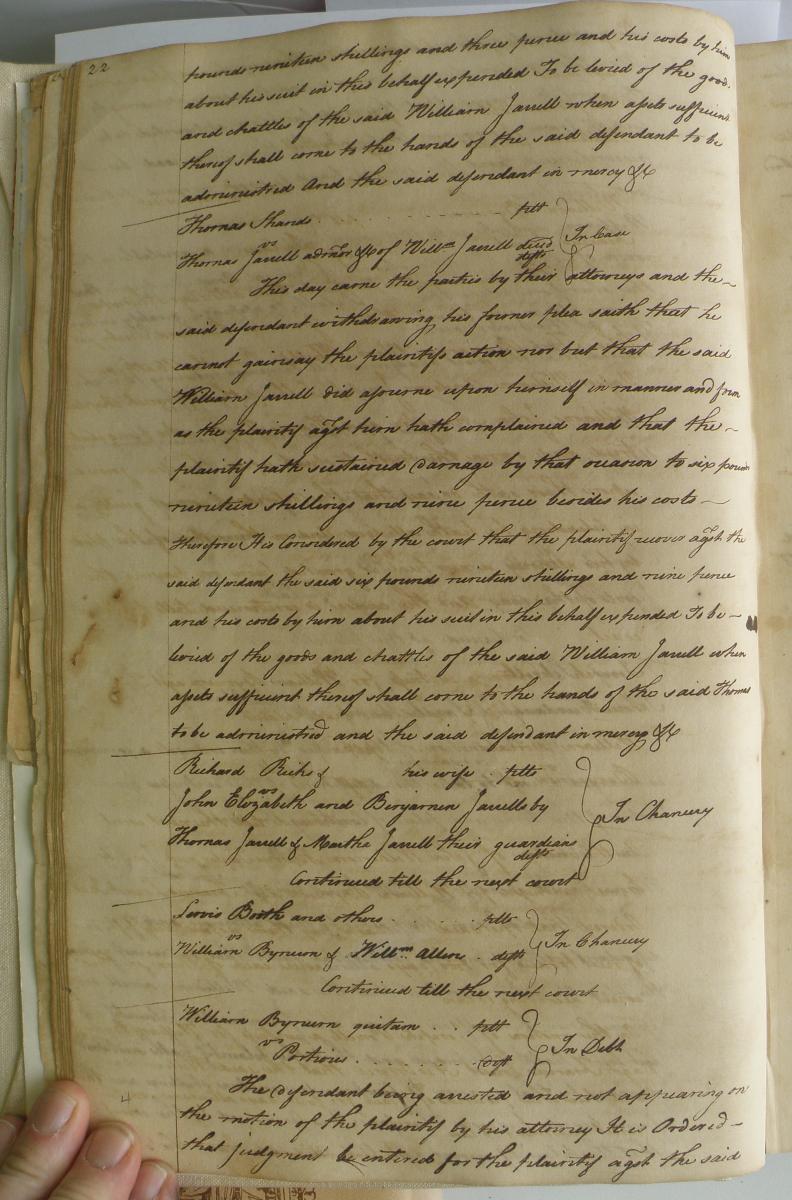 22
pounds nineteen shillings and three pence and his costs by him
about his suit in this behalf expended To be levied of the goods
and chattles of the said William Jarrell when assets sufficient
thereof shall come to the hands of the said defendant to be
administred And the said defendant in mercy &c
Thomas Shands . . . . . . . . . . plt
vs
In Case
Thomas Jarrell admor &c of Willm Jarrell decd
deft
This day came the parties by their attorneys and the
said defendant withdrawing his former plea saith that he
cannot gainsay the plaintifs action nor but that the said
William Jarrell did assume upon himself in manner and form
as the plaintif agst him hath complained and that the
plaintif hath sustained damage by that occasion to six pounds
nineteen shillings and nine pence besides his costs
Therefore It is Considered by the court that the plaintif recover agst the
said defendant the said six pounds nineteen shillings and nine pence
and his costs by him about his suit in this behalf expended To be
levied of the goods and chattles of the said William Jarrell when
assets sufficient thereof shall come to the hands of the said Thomas
to be administred and the said defendant in mercy &c
Richard Ricks & his wife plts
vs
John Elizabeth and Benjamin Jarrells by
In Chancery
Thomas Jarrell & Martha Jarrell their guardians
defts
Continued till the next court
Lewis Booth and others . . . . . plts
vs
In Chancery
William Bynum & Willm Allen . defts
Continued till the next court
William Bynum quitam . . plt
vs
In Debt
Portions . . . . . . . . deft
4
The defendant being arrested and not appearing on
the motion of the plaintif by his attorney It is Ordered
that judgment be entered for the plaintif agst the said